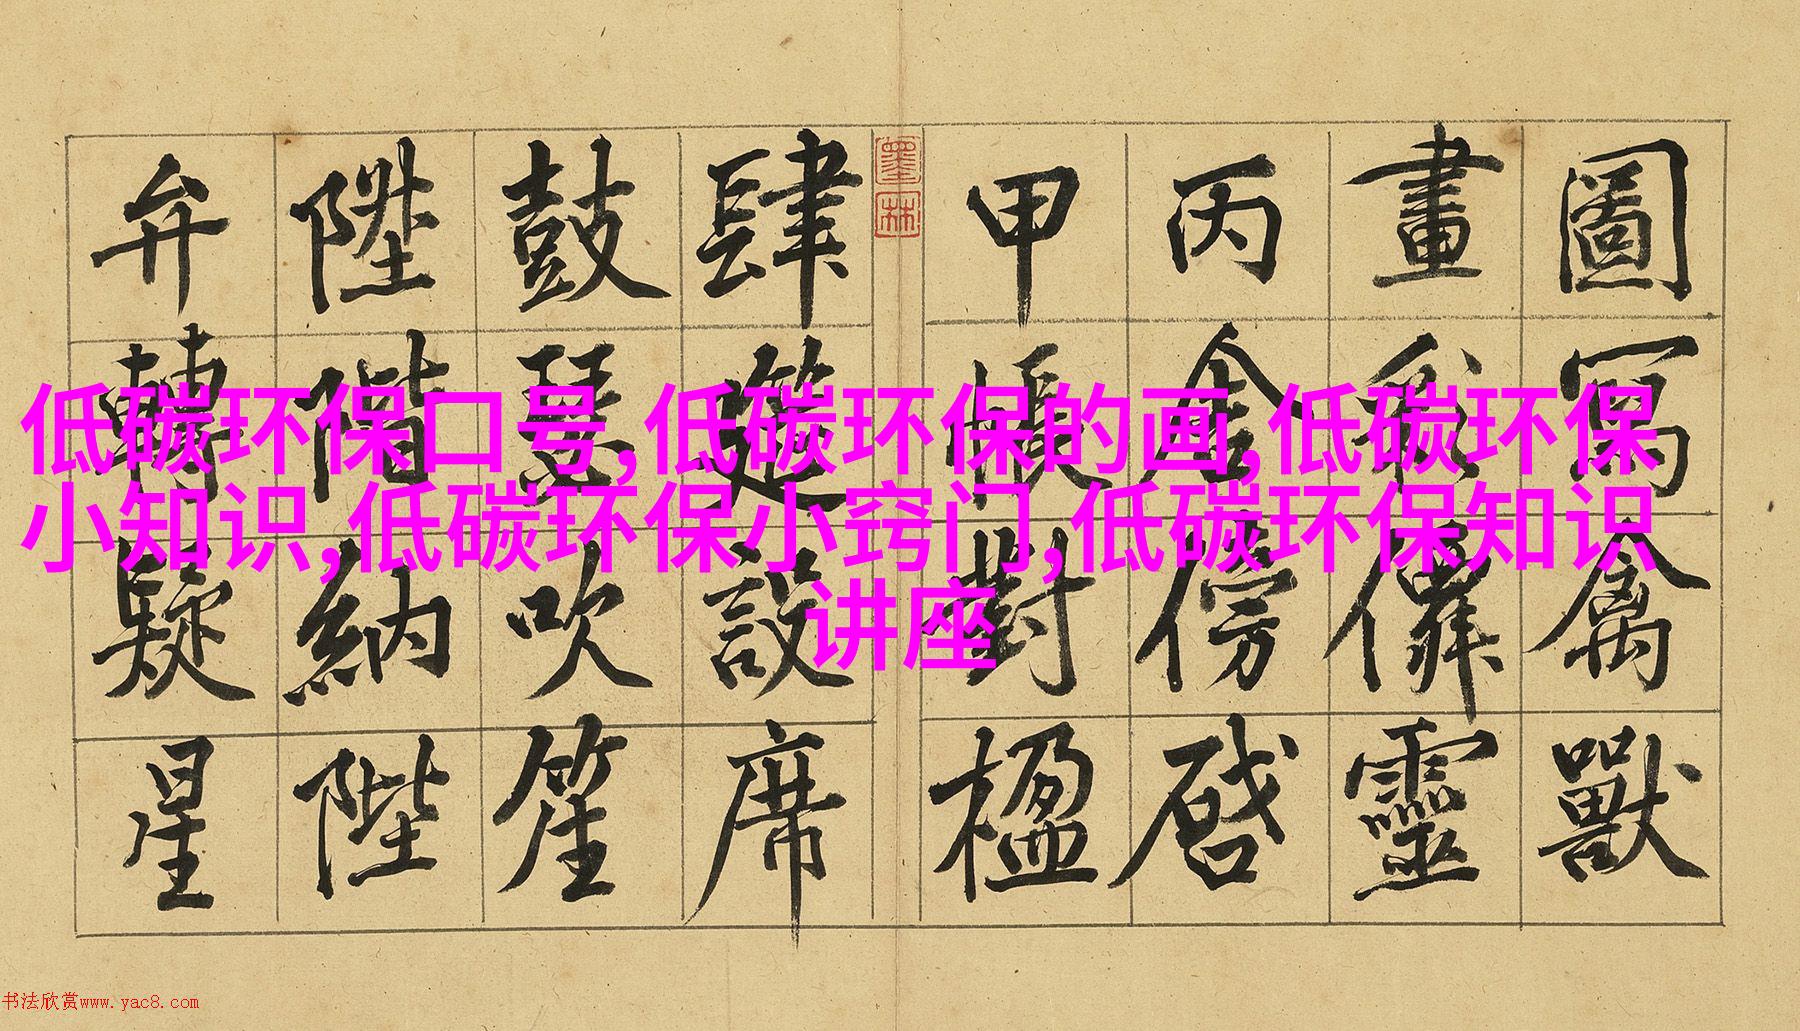 低碳环保口号,低碳环保的画,低碳环保
小知识,低碳环保小窍门,低碳环保知识
讲座
圖寫禽獸
畫彩僊靈
丙舍傍啓
甲帳對楹
墨林
肆筵設席
鼓瑟吹笙
陞階納陛
弁轉疑星
书法欣赏www.yac8.com